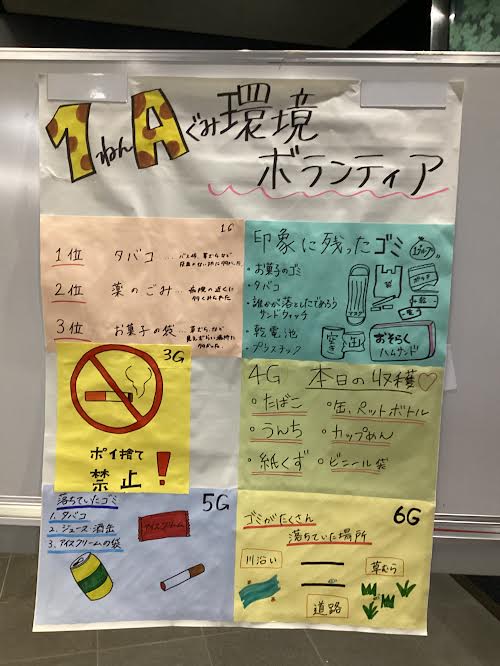 1ねんAぐみ環境
ボランティア
1G
1位 タバコ
2位 薬のごみ
3位 お菓子の袋
印象に残ったゴミ
・お菓子のゴミ
・タバコ
・誰かが落としたであろう
サンドウィッチ
・乾電池
・プラスチック
マスク
空き缶
おそらく
ハムサンド
3G
ポイ捨て
禁止!
4G 本日の収穫♡
・たばこ ・缶、ペットボトル
・うんち ・カップめん
・紙くず ・ビニール袋
5G
落ちていたゴミ
1. タバコ
2. ジュース・酒缶
3. アイスクリームの袋
アイスクリーム
6G
ゴミがたくさん
落ちていた場所
川沿い
草むら
道路